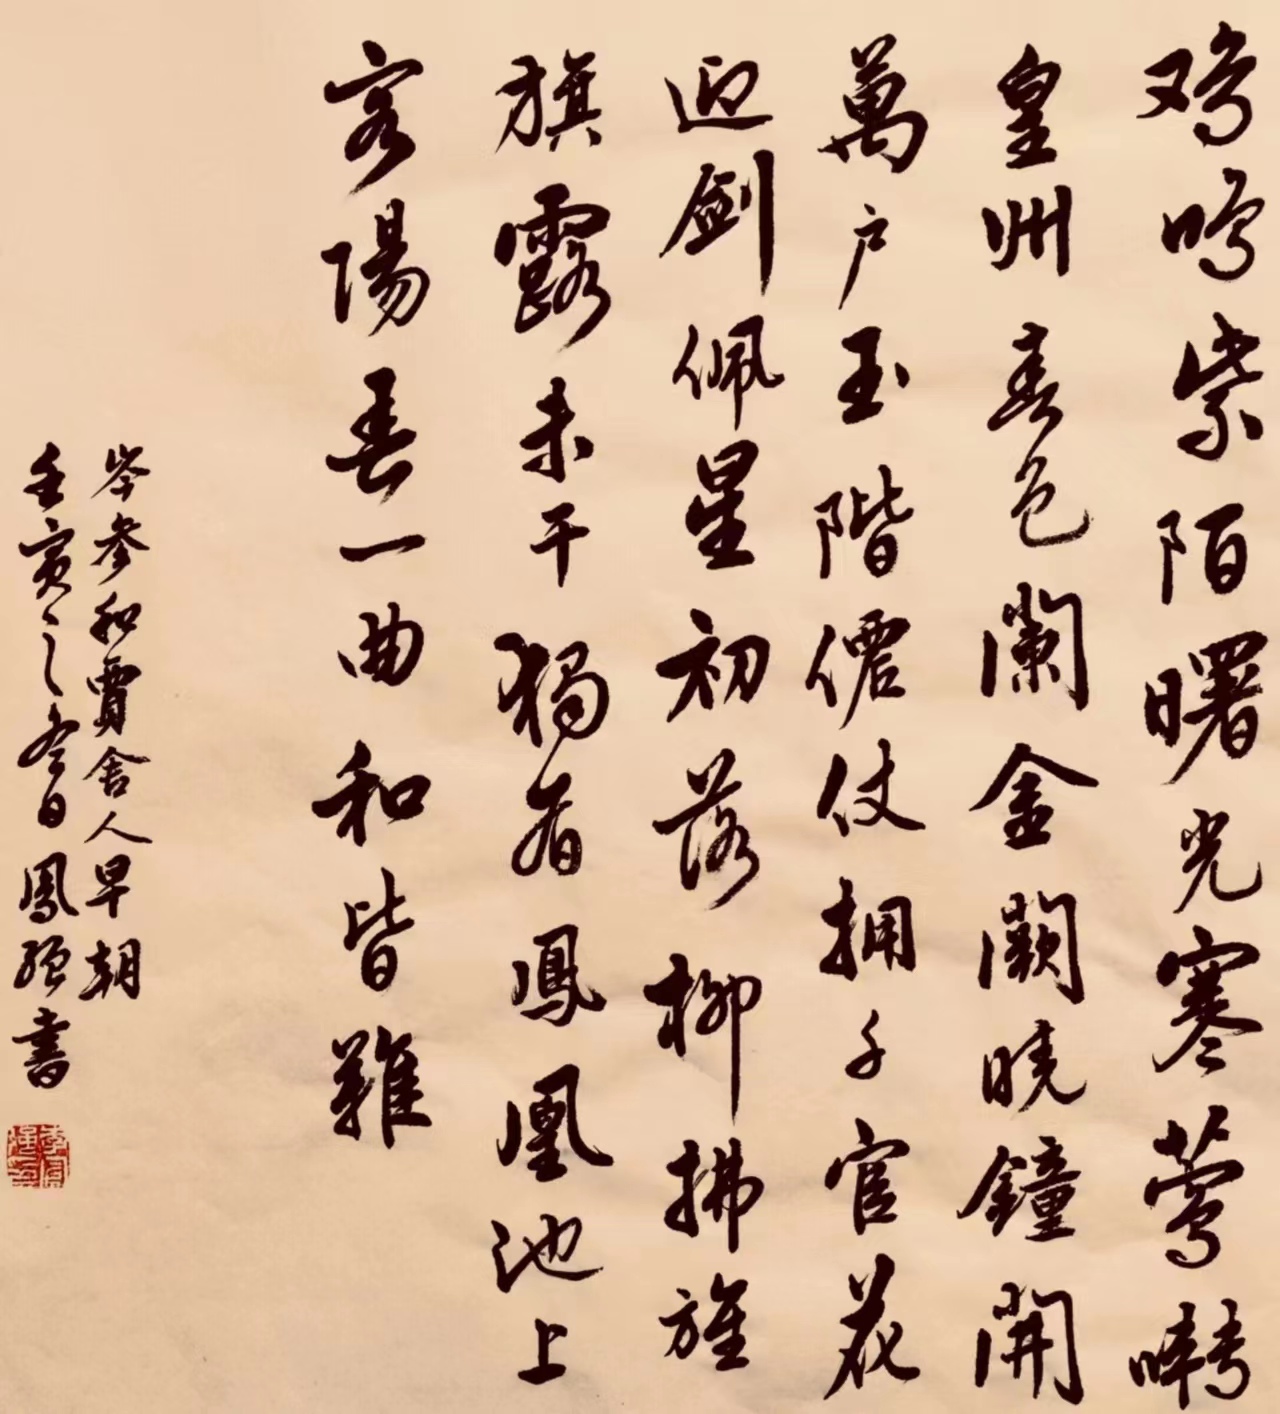 鸡鸣紫陌曙光寒莺啭
皇州春色阑金阙晓鐘開
萬户玉階僊仗拥千官花
迎劍佩星初落柳拂旌
旗露未干獨有鳳凰池上
客陽春一曲和皆難
岑参和賈舍人早朝
壬寅之冬日鳳强書